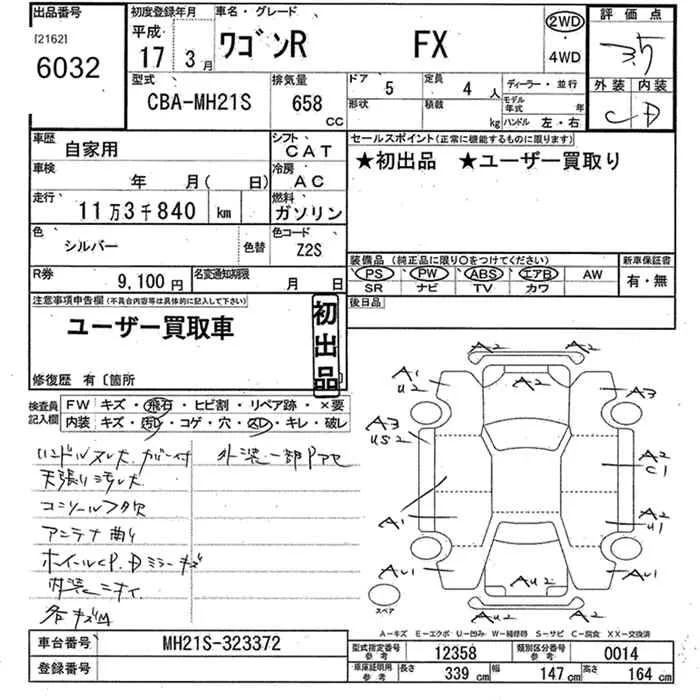 出品番号
[2162]
6032
初度登録年月
平成
17 3月
車名・グレード
ワゴンR FX
2WD
4WD
評価点
3.5
外装 内装
C D
型式
CBA-MH21S
排気量
658 CC
ドア 5
形状
定員 4 人
積載 kg
ディーラー・並行
モデル年式 年
ハンドル 左・右
車歴
自家用
シフト
CAT
車検 年 月( 日)
冷房
AC
走行
11万3千840 km
燃料
ガソリン
色
シルバー
色替
色コード
Z2S
R券
9,100円
名変通知期限
月 日
セールスポイント(正常に機能するものに限ります)
★初出品 ★ユーザー買取り
装備品(純正品に限り○をつけてください)
PS PW ABS エアB AW
SR ナビ TV カワ
新車保証書
有・無
後日品
注意事項申告欄(不具合内容等は具体的に記入して下さい)
ユーザー買取車
初出品
修復歴 有〔箇所
検査員記入欄
FW キズ・飛石・ヒビ割・リペア跡・×要
内装 キズ・汚レ・コゲ・穴・スレ・キレ・破レ
ハンドルスレ大 カバー付
外装一部Pアセ
天張り汚レ大
コンソールフタ欠
アンテナ曲り
ホイールCP.Dミラーキズ
内装ニオイ
各キズM
A2 A2
A1
U2
A2
A3
A3
US2
A2
C1
A1
A2
U1
AU1
AU2
AU1
AU2 A2
スペア
A-キズ E-エクボ U-凹み W-補修跡 S-サビ C-腐食 XX-交換済
車台番号
MH21S-323372
登録番号
型式指定番号
参考
12358
類別区分番号
参考
0014
車庫証明用
参考
長さ 339 cm
幅 147 cm
高さ 164 cm